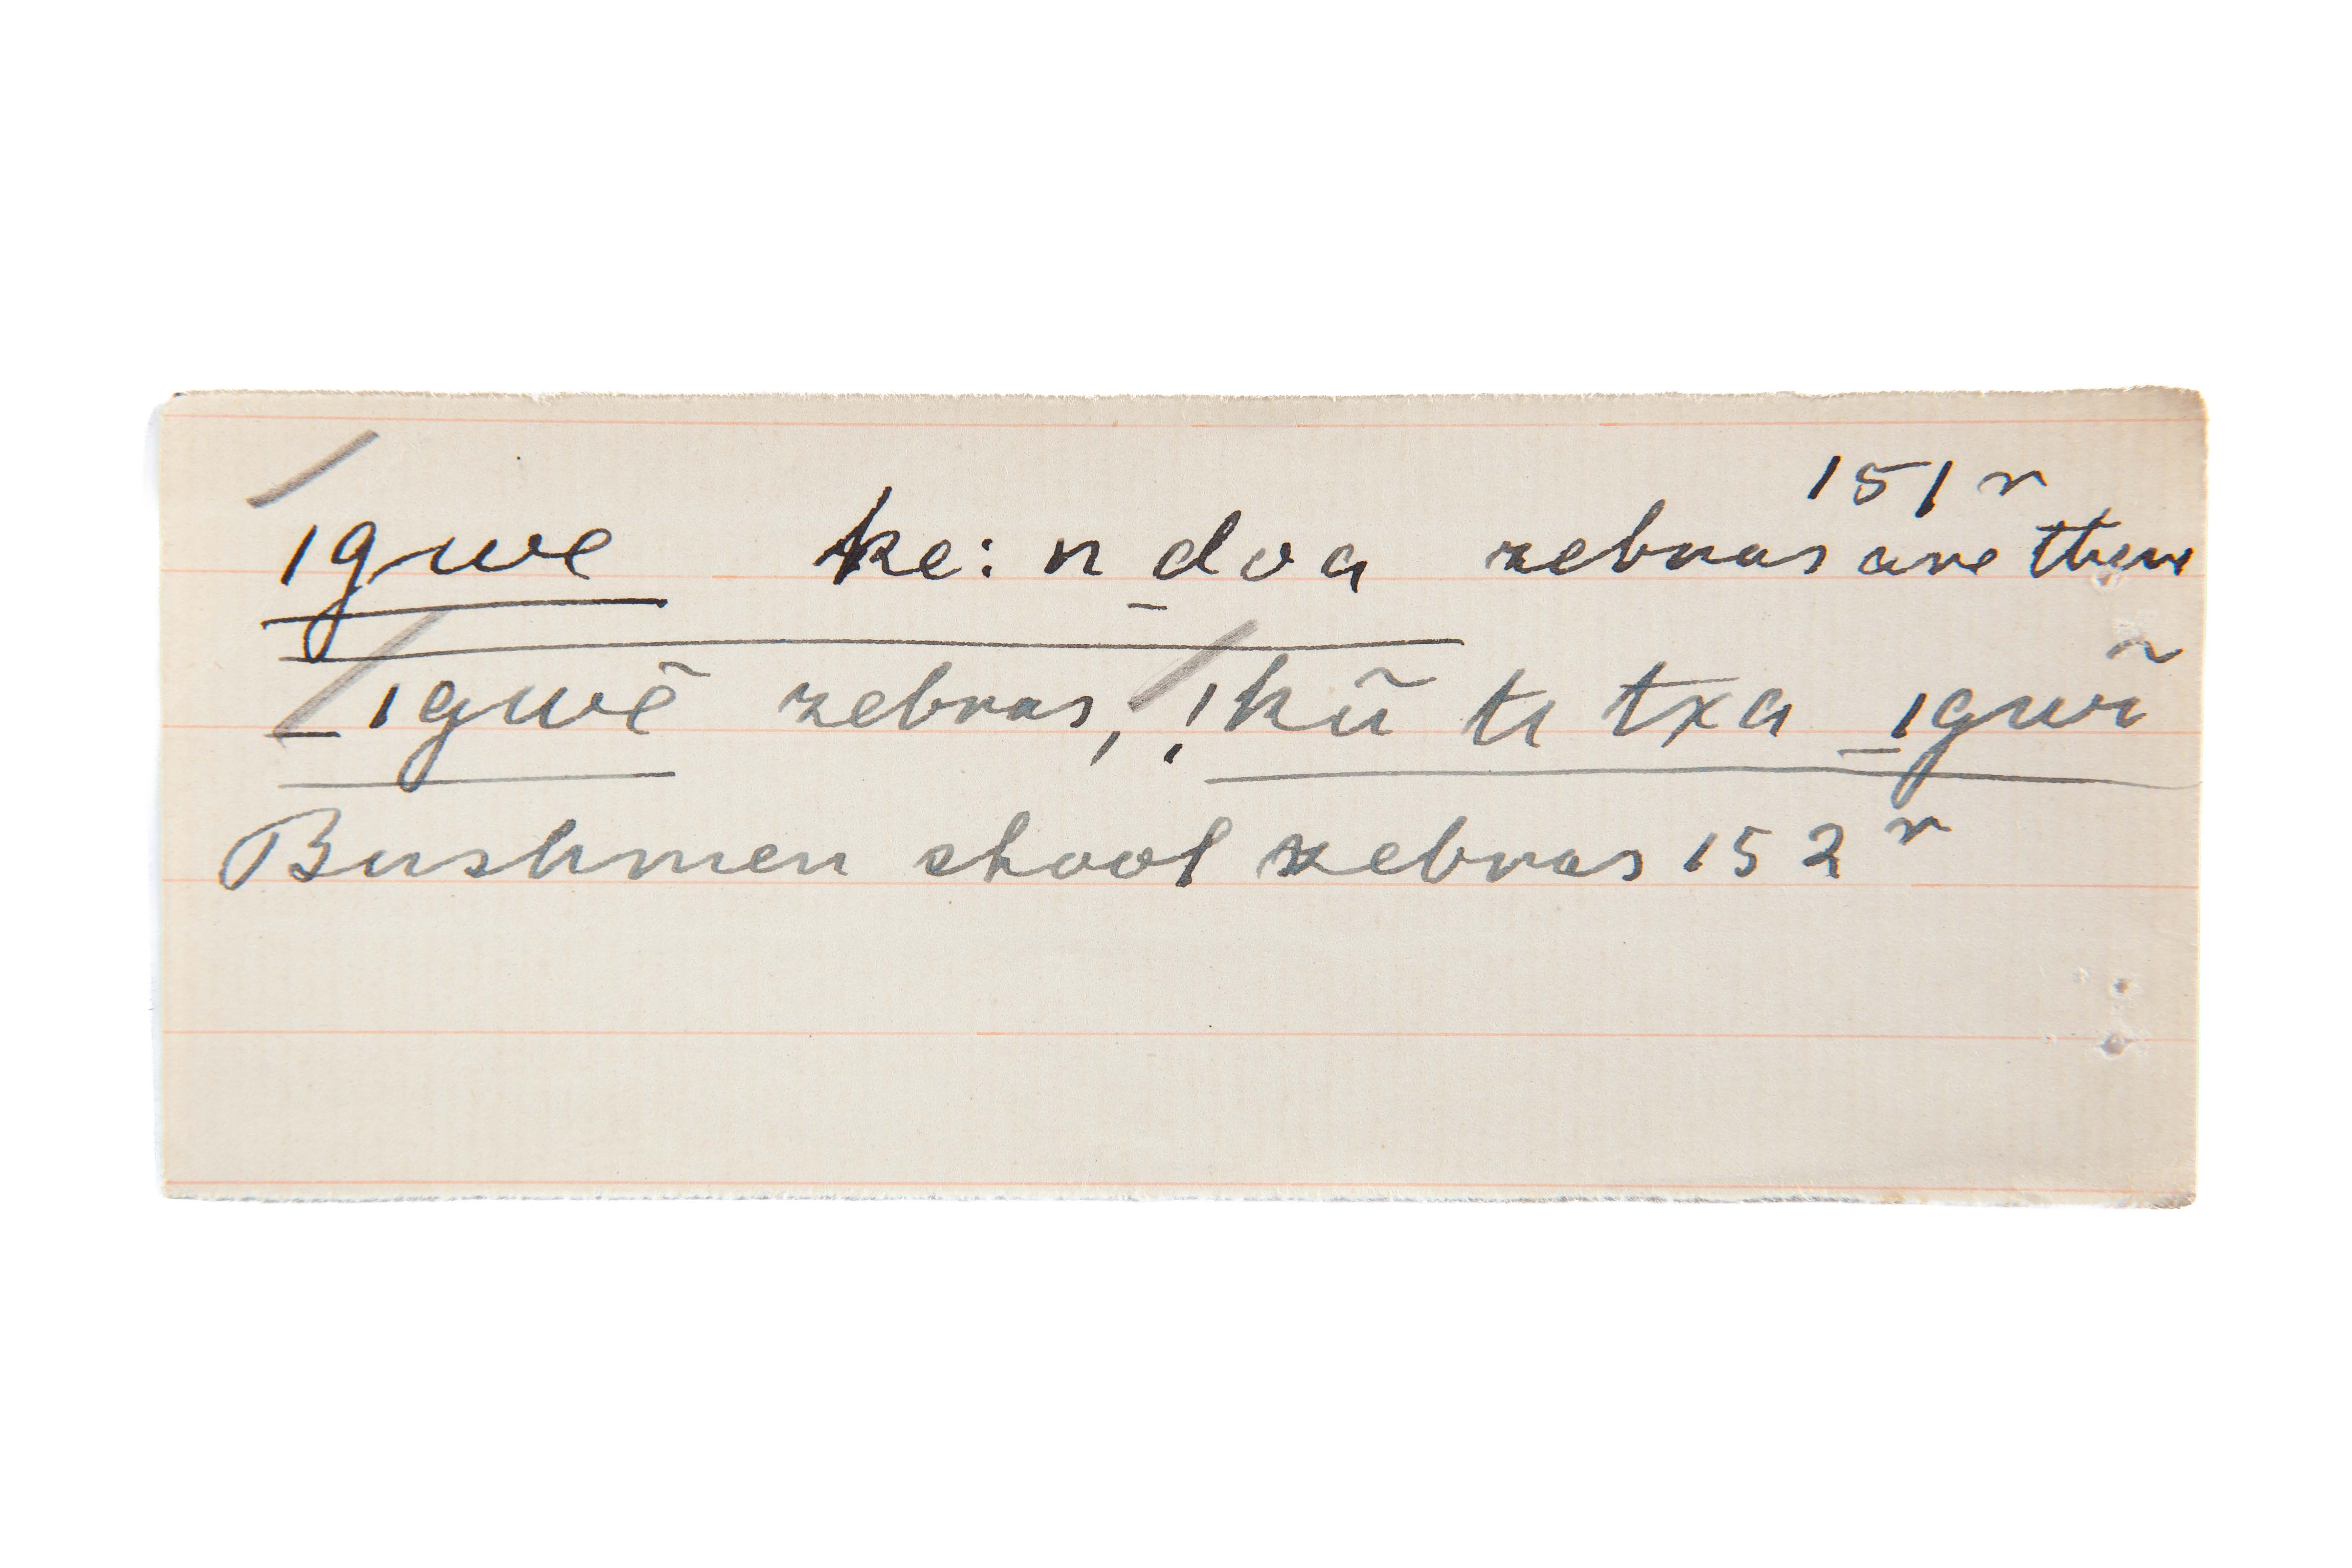 151 r
ǀgwe ke: n doa zebras are there
_ ǀgwē zebras, !kũ ti txa _ ǀgwĩ
Bushmen shoot zebras 152 r